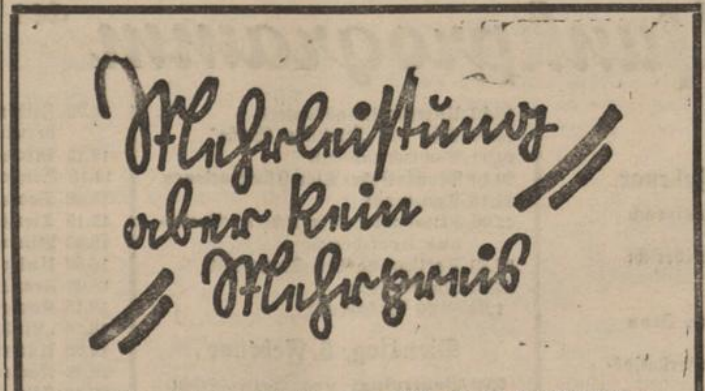 Mehrleistung
aber kein
Mehrpreis